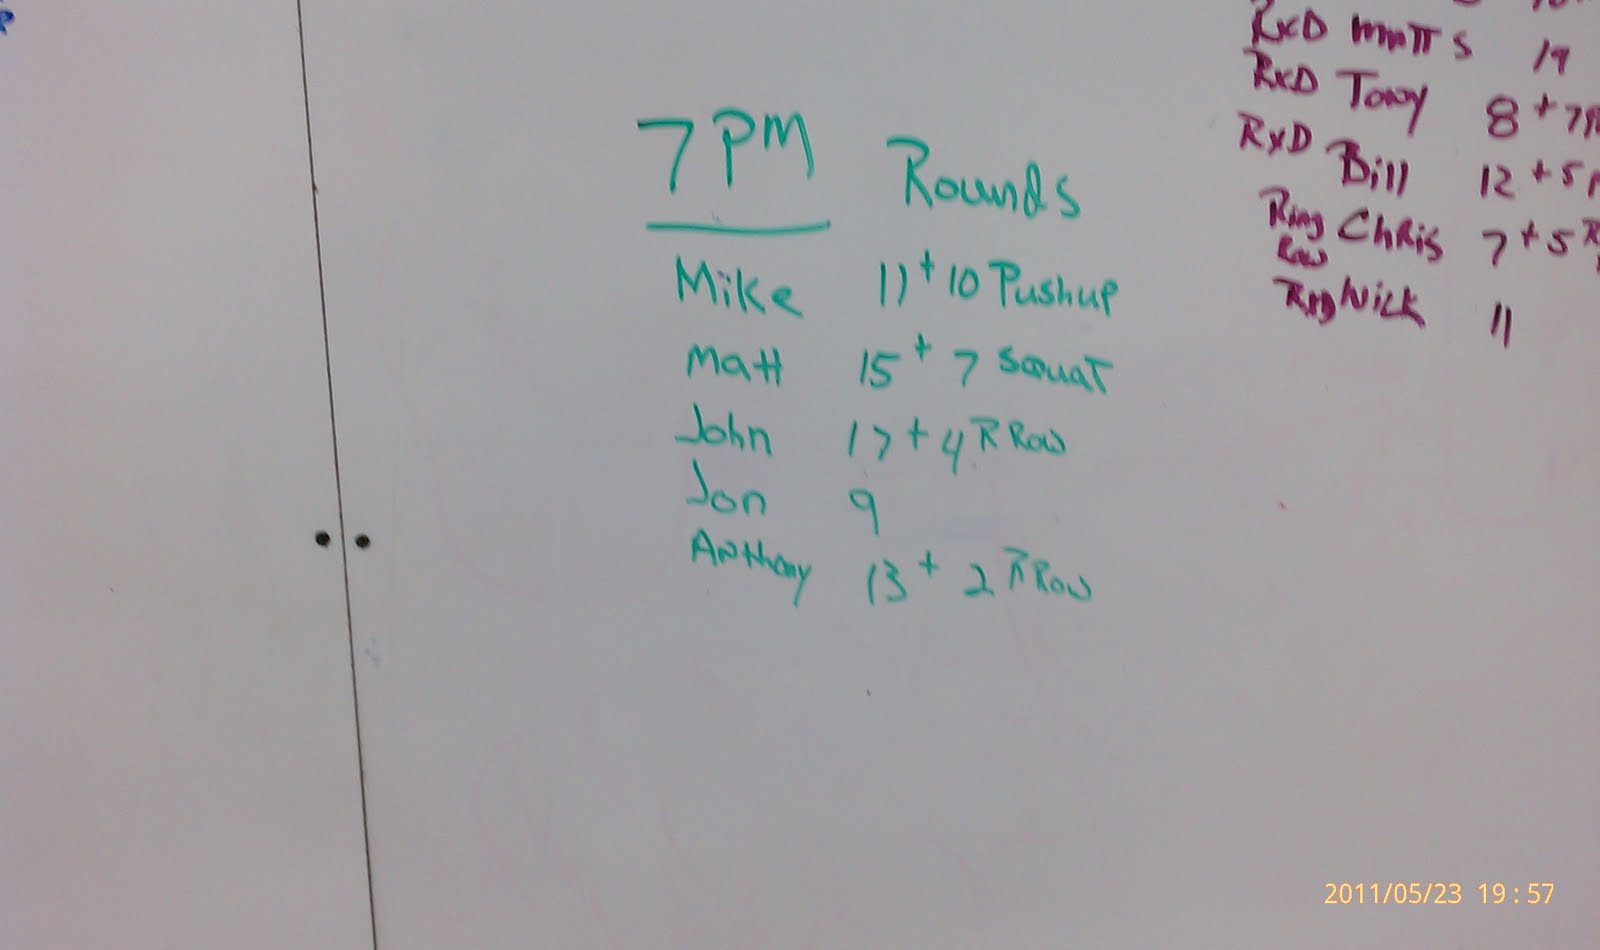 7 PM Rounds
Mike 11 + 10 Pushup
Matt 15 + 7 Squat
John 17 + 4 R Row
Jon 9
Anthony 13 + 2 R Row
RxD Matt S 19
RxD Tony 8 + 7
RxD Bill 12 + 5
Ring Row Chris 7 + 5 R
RxD Nick 11
2011/05/23 19:57